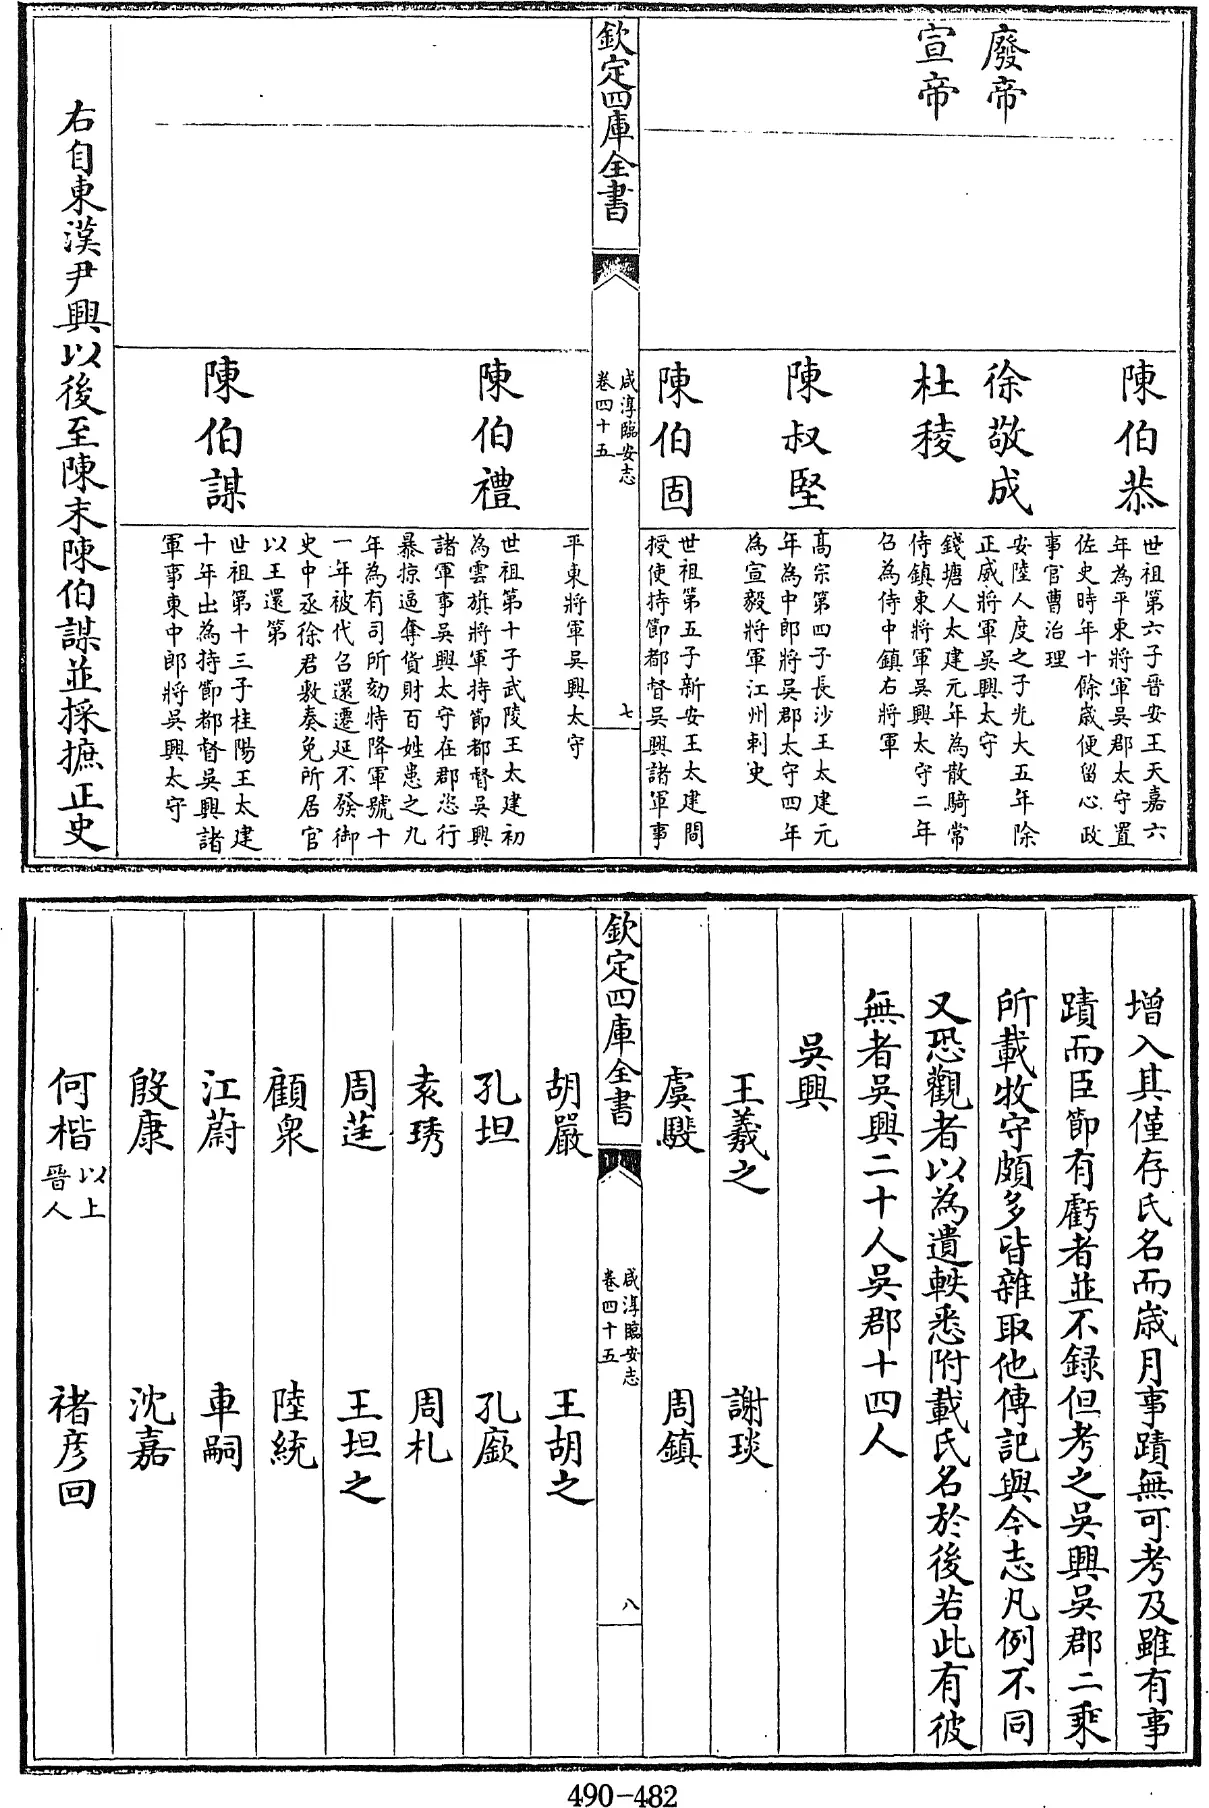 陳伯恭
世祖第六子晉安王天嘉六
年為平東將軍吳郡太守置
佐史時年十餘歲便留心政
事官曹治理
廢帝
徐敬成
安陸人度之子光大五年除
正威將軍吳興太守
宣帝
杜稜
錢塘人太建元年為散騎常
侍鎮東將軍吳興太守二年
召為侍中鎮右將軍
陳叔堅
髙宗第四子長沙王太建元
年為中郎將吳郡太守四年
為宣毅將軍江州刺史
陳伯固
世祖第五子新安王太建間
授使持節都督吳興諸軍事
欽定四庫全書
咸淳臨安志
卷四十五
七
平東將軍吳興太守
陳伯禮
世祖第十子武陵王太建初
為雲旗將軍持節都督吳興
諸軍事吳興太守在郡恣行
暴掠逼奪貨財百姓患之九
年為有司所劾恃降軍號十
一年被代召還遷延不發御
史中丞徐君敷奏免所居官
以王還第
陳伯謀
世祖第十三子桂陽王太建
十年出為持節都督吳興諸
軍事東中郎將吳興太守
右自東漢尹興以後至陳末陳伯謀並採摭正史
增入其僅存氏名而歲月事蹟無可考及雖有事
蹟而臣節有虧者並不録但考之吳興吳郡二乘
所載牧守頗多皆雜取他傳記與今志凡例不同
又恐觀者以為遺軼悉附載氏名於後若此有彼
無者吳興二十人吳郡十四人
吳興
王羲之 謝琰
虞𩦎 周鎮
欽定四庫全書
咸淳臨安志
卷四十五
八
胡嚴 王胡之
孔坦 孔廞
袁琇 周札
周莚 王坦之
顧衆 陸統
江蔚 車嗣
殷康 沈嘉
何楷以上晉人 褚彦回
490-482